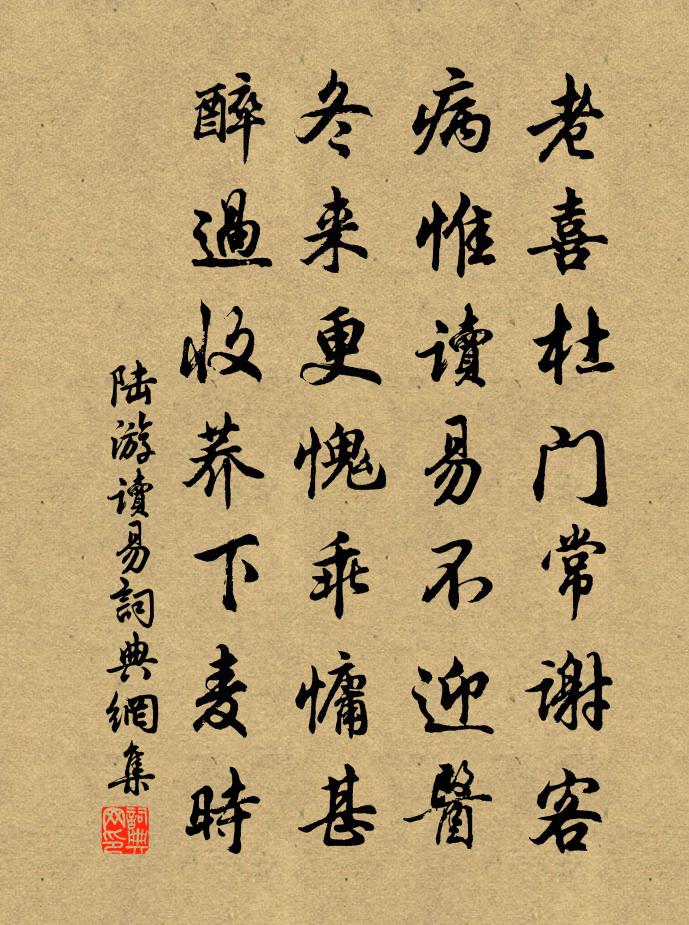 老喜杜门常谢客
病惟讀易不迎醫
冬来更愧乖慵甚
醉過收荞下麦時
陆游讀易詞典網集
詞典网印